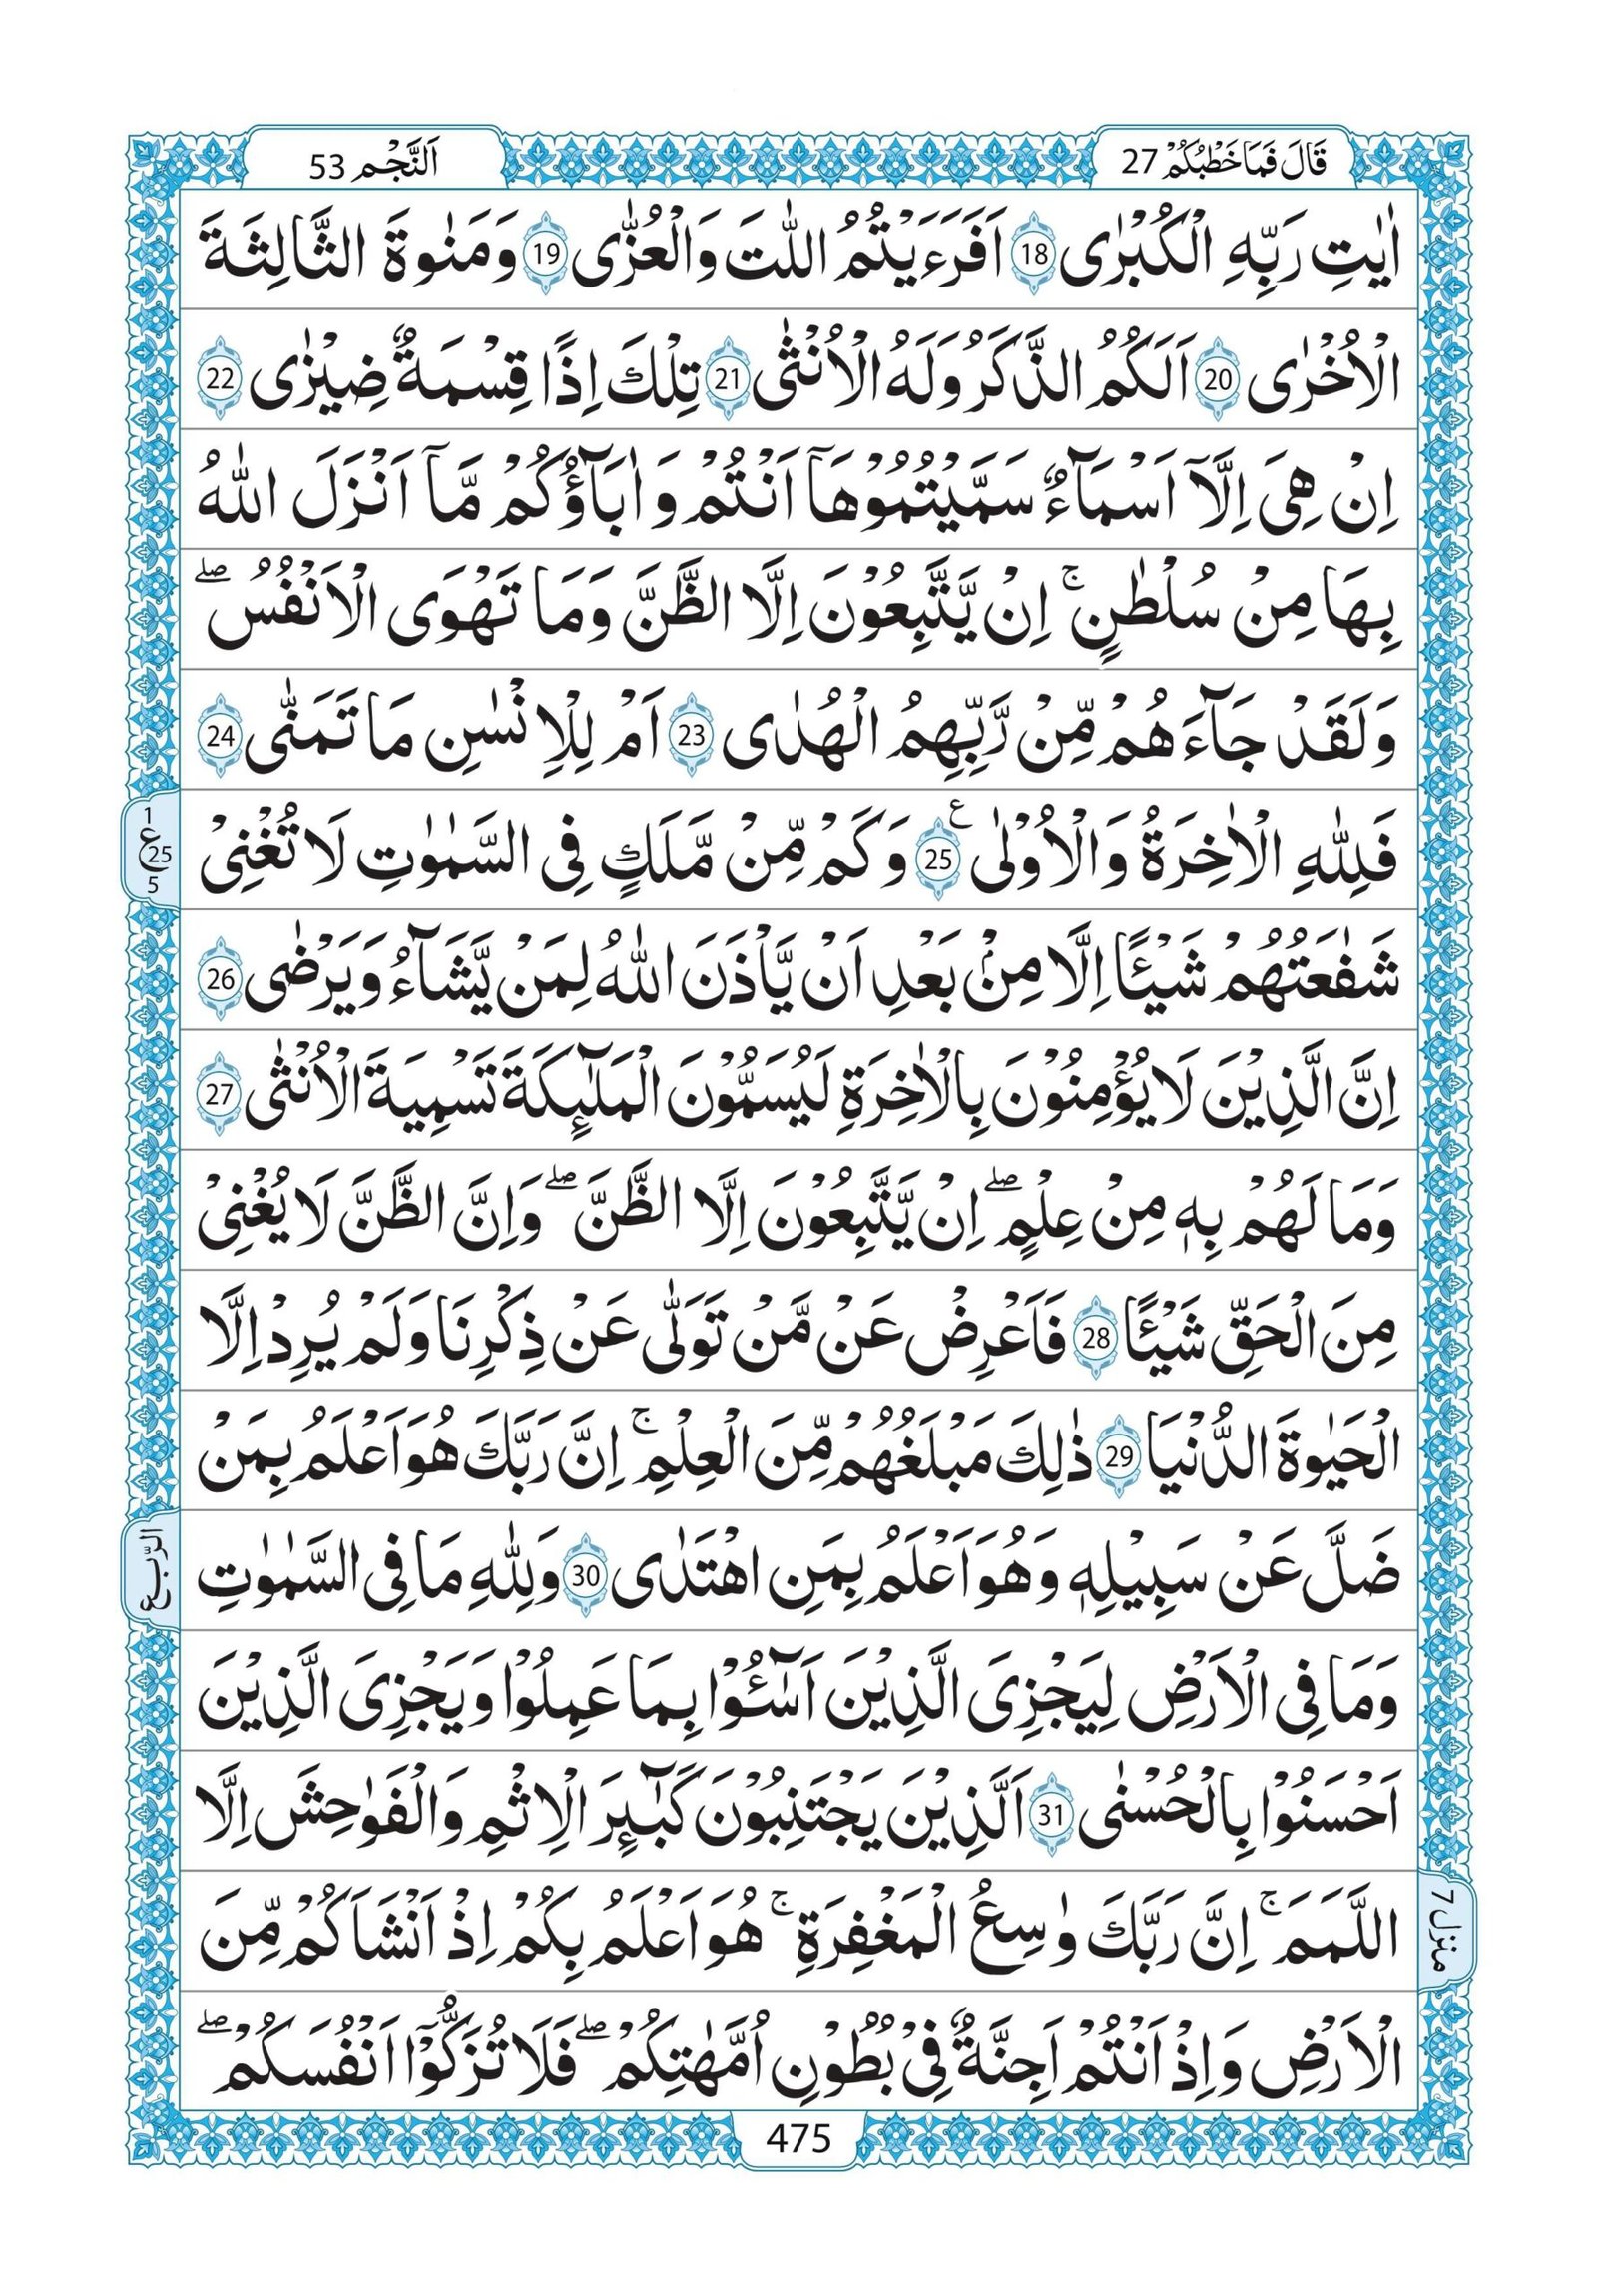 قَالَ فَمَا خَطْبُكُمْ 27
اَلنَّجْم 53
اٰيٰتِ رَبِّهِ الْكُبْرٰى 18 اَفَرَءَيْتُمُ اللّٰتَ وَالْعُزّٰى 19 وَمَنٰوةَ الثَّالِثَةَ
الْاُخْرٰى 20 اَلَكُمُ الذَّكَرُ وَلَهُ الْاُنْثٰى 21 تِلْكَ اِذًا قِسْمَةٌ ضِيْزٰى 22
اِنْ هِيَ اِلَّآ اَسْمَآءٌ سَمَّيْتُمُوْهَآ اَنْتُمْ وَ اٰبَآؤُكُمْ مَّآ اَنْزَلَ اللّٰهُ
بِهَا مِنْ سُلْطٰنٍ ۚ اِنْ يَّتَّبِعُوْنَ اِلَّا الظَّنَّ وَمَا تَهْوَى الْاَنْفُسُ ۖ
وَلَقَدْ جَآءَهُمْ مِّنْ رَّبِّهِمُ الْهُدٰى 23 اَمْ لِلْاِنْسٰنِ مَا تَمَنّٰى 24
فَلِلّٰهِ الْاٰخِرَةُ وَالْاُوْلٰى ع 25 وَكَمْ مِّنْ مَّلَكٍ فِى السَّمٰوٰتِ لَا تُغْنِىْ
1
ع 25
5
شَفٰعَتُهُمْ شَيْئًا اِلَّا مِنْۢ بَعْدِ اَنْ يَّاْذَنَ اللّٰهُ لِمَنْ يَّشَآءُ وَيَرْضٰى 26
اِنَّ الَّذِيْنَ لَا يُؤْمِنُوْنَ بِالْاٰخِرَةِ لَيُسَمُّوْنَ الْمَلٰٓئِكَةَ تَسْمِيَةَ الْاُنْثٰى 27
وَمَا لَهُمْ بِهٖ مِنْ عِلْمٍ ۖ اِنْ يَّتَّبِعُوْنَ اِلَّا الظَّنَّ ۖ وَاِنَّ الظَّنَّ لَا يُغْنِىْ
مِنَ الْحَقِّ شَيْئًا 28 فَاَعْرِضْ عَنْ مَّنْ تَوَلّٰى عَنْ ذِكْرِنَا وَلَمْ يُرِدْ اِلَّا
الْحَيٰوةَ الدُّنْيَا 29 ذٰلِكَ مَبْلَغُهُمْ مِّنَ الْعِلْمِ ۚ اِنَّ رَبَّكَ هُوَ اَعْلَمُ بِمَنْ
ضَلَّ عَنْ سَبِيْلِهٖ وَهُوَ اَعْلَمُ بِمَنِ اهْتَدٰى 30 وَلِلّٰهِ مَا فِى السَّمٰوٰتِ
الرّبع
وَمَا فِى الْاَرْضِ لِيَجْزِىَ الَّذِيْنَ اَسٰٓـُٔوْا بِمَا عَمِلُوْا وَيَجْزِىَ الَّذِيْنَ
اَحْسَنُوْا بِالْحُسْنٰى 31 اَلَّذِيْنَ يَجْتَنِبُوْنَ كَبٰٓئِرَ الْاِثْمِ وَالْفَوٰحِشَ اِلَّا
اللَّمَمَ ۚ اِنَّ رَبَّكَ وٰسِعُ الْمَغْفِرَةِ ۚ هُوَ اَعْلَمُ بِكُمْ اِذْ اَنْشَاَكُمْ مِّنَ
منزل ٧
الْاَرْضِ وَاِذْ اَنْتُمْ اَجِنَّةٌ فِىْ بُطُوْنِ اُمَّهٰتِكُمْ ۖ فَلَا تُزَكُّوْٓا اَنْفُسَكُمْ ۖ
475